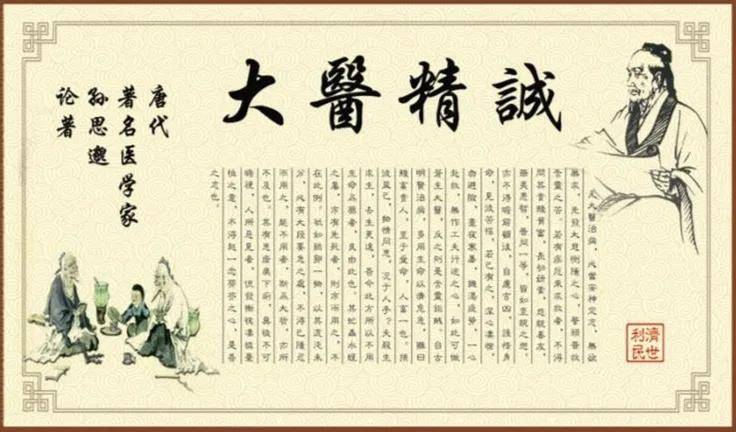 大醫精誠
唐代
著名医学家
孙思邈
论著
凡大醫治病，必當安神定志，無欲
無求，先發大慈惻隱之心，誓願普救
含靈之苦。若有疾厄來求救者，不得
問其貴賤貧富，長幼妍蚩，怨親善友，
華夷愚智，普同一等，皆如至親之想。
亦不得瞻前顧後，自慮吉凶，護惜身
命，見彼苦惱，若己有之，深心凄愴，
勿避險巇，晝夜寒暑，饑渴疲勞，一心
赴救，無作工夫行跡之心，如此可做
蒼生大醫，反之則是含靈巨賊。自古
明賢治病，多用生命以濟危急，雖曰
賤畜貴人，至于愛命，人畜一也。損
彼益己，物情同患，況于人乎？夫殺生
求生，去生更遠。吾今此方所以不用
生命為藥者，良由此也。其虻蟲水蛭
之屬，市有先死者，則市而用之，不
在此例。祇如雞卵一物，以其混沌未
分，必有大段要急之處，不得已隱忍
而用之。能不用者，斯為大哲，亦所
不及也。其有患瘡痍下痢，臭穢不可
瞻視，人所惡見者，但發慚愧凄憐憂
恤之意，不得起一念蒂芥之心，是吾
之志也。
濟世
利民